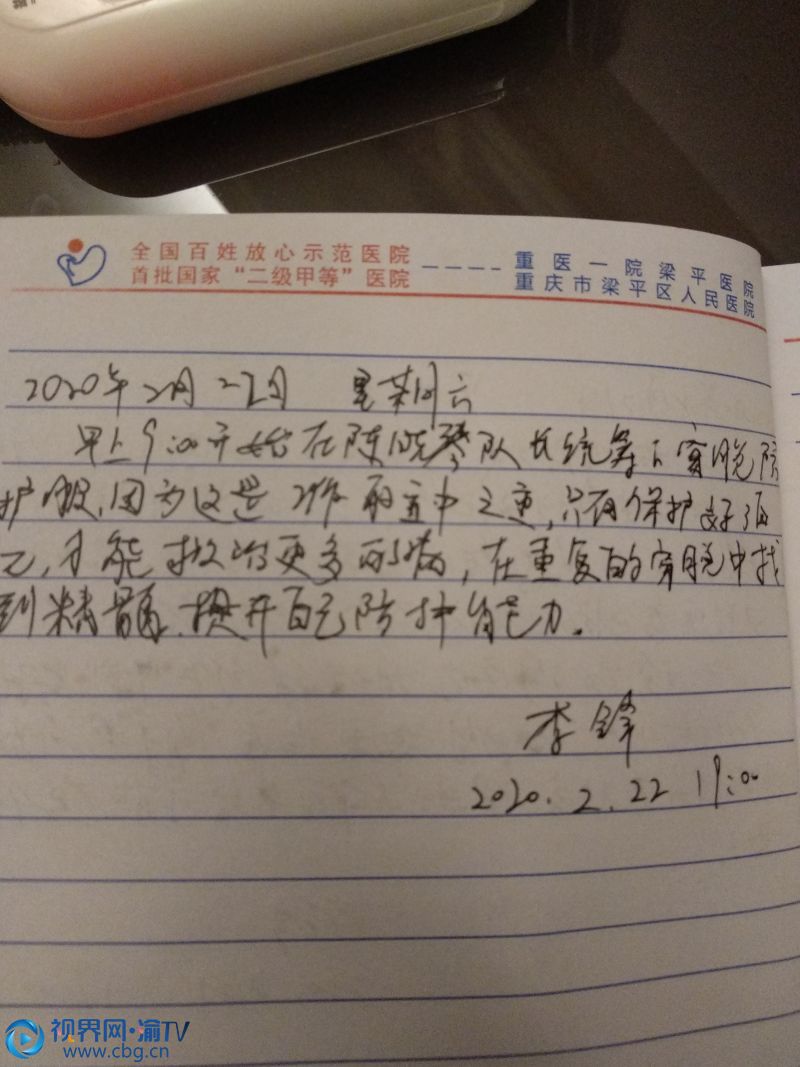 全国百姓放心示范医院
首批国家“二级甲等”医院
重医一院梁平医院
重庆市梁平区人民医院
2020年2月22日 星期六
早上9:00开始在陈晓琴队长统筹下穿脱防
护服,因为这是工作的重中之重,只有保护好自
己,才能救治更多的病,在重复的穿脱中找
到精髓.提升自己防护能力。
李锋
2020.2.22 19:00
视界网·渝TV
www.cbg.cn